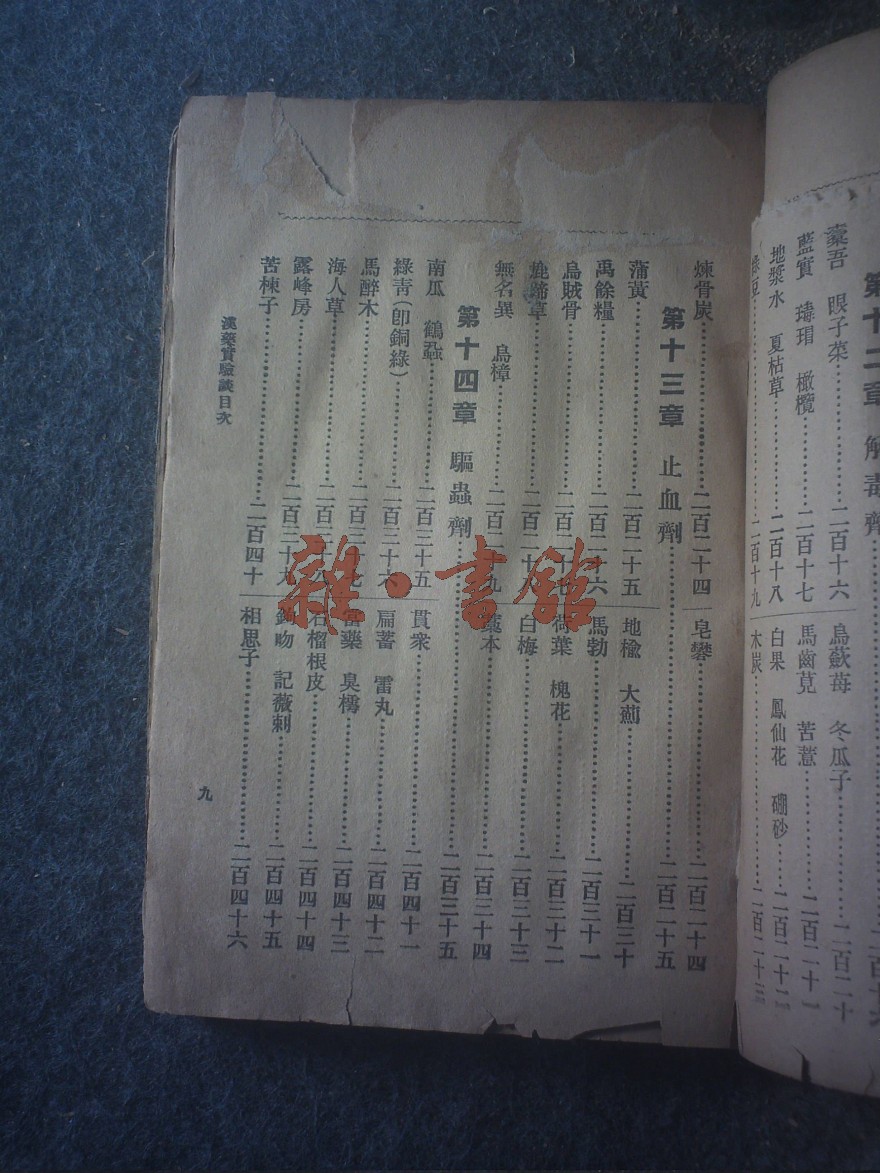 第十二章 解毒劑
橐吾 眼子菜……二百十六 烏蘞苺 冬瓜子……二百二十
藍實 瑇瑁 橄欖……二百十七 馬齒莧 苦薏……二百二十一
地漿水 夏枯草……二百十八 白果 鳳仙花 硼砂……二百二十二
綠豆……二百十九 木炭……二百二十三
煉骨炭……二百二十四 皂礬……二百二十四
第十三章 止血劑……二百二十五
蒲黃……二百二十五 地楡 大薊……二百三十
禹餘糧……二百二十六 馬勃……二百三十一
烏賊骨……二百二十七 荷葉 槐花……二百三十二
鹿蹄草……二百二十八 白梅……二百三十三
無名異 烏樟……二百二十九 藁本……二百三十四
第十四章 驅蟲劑……二百三十五
南瓜 鶴蝨……二百三十五 貫衆……二百四十一
綠靑(卽銅綠)……二百三十六 扁蓄 雷丸……二百四十二
馬醉木……二百三十七 藥 臭樗……二百四十三
海人草……二百三十八 石榴根皮……二百四十四
露峰房……二百三十九 鉤吻 記薇刺……二百四十五
苦楝子……二百四十 相思子……二百四十六
漢藥實驗談目次
九
雜·書館